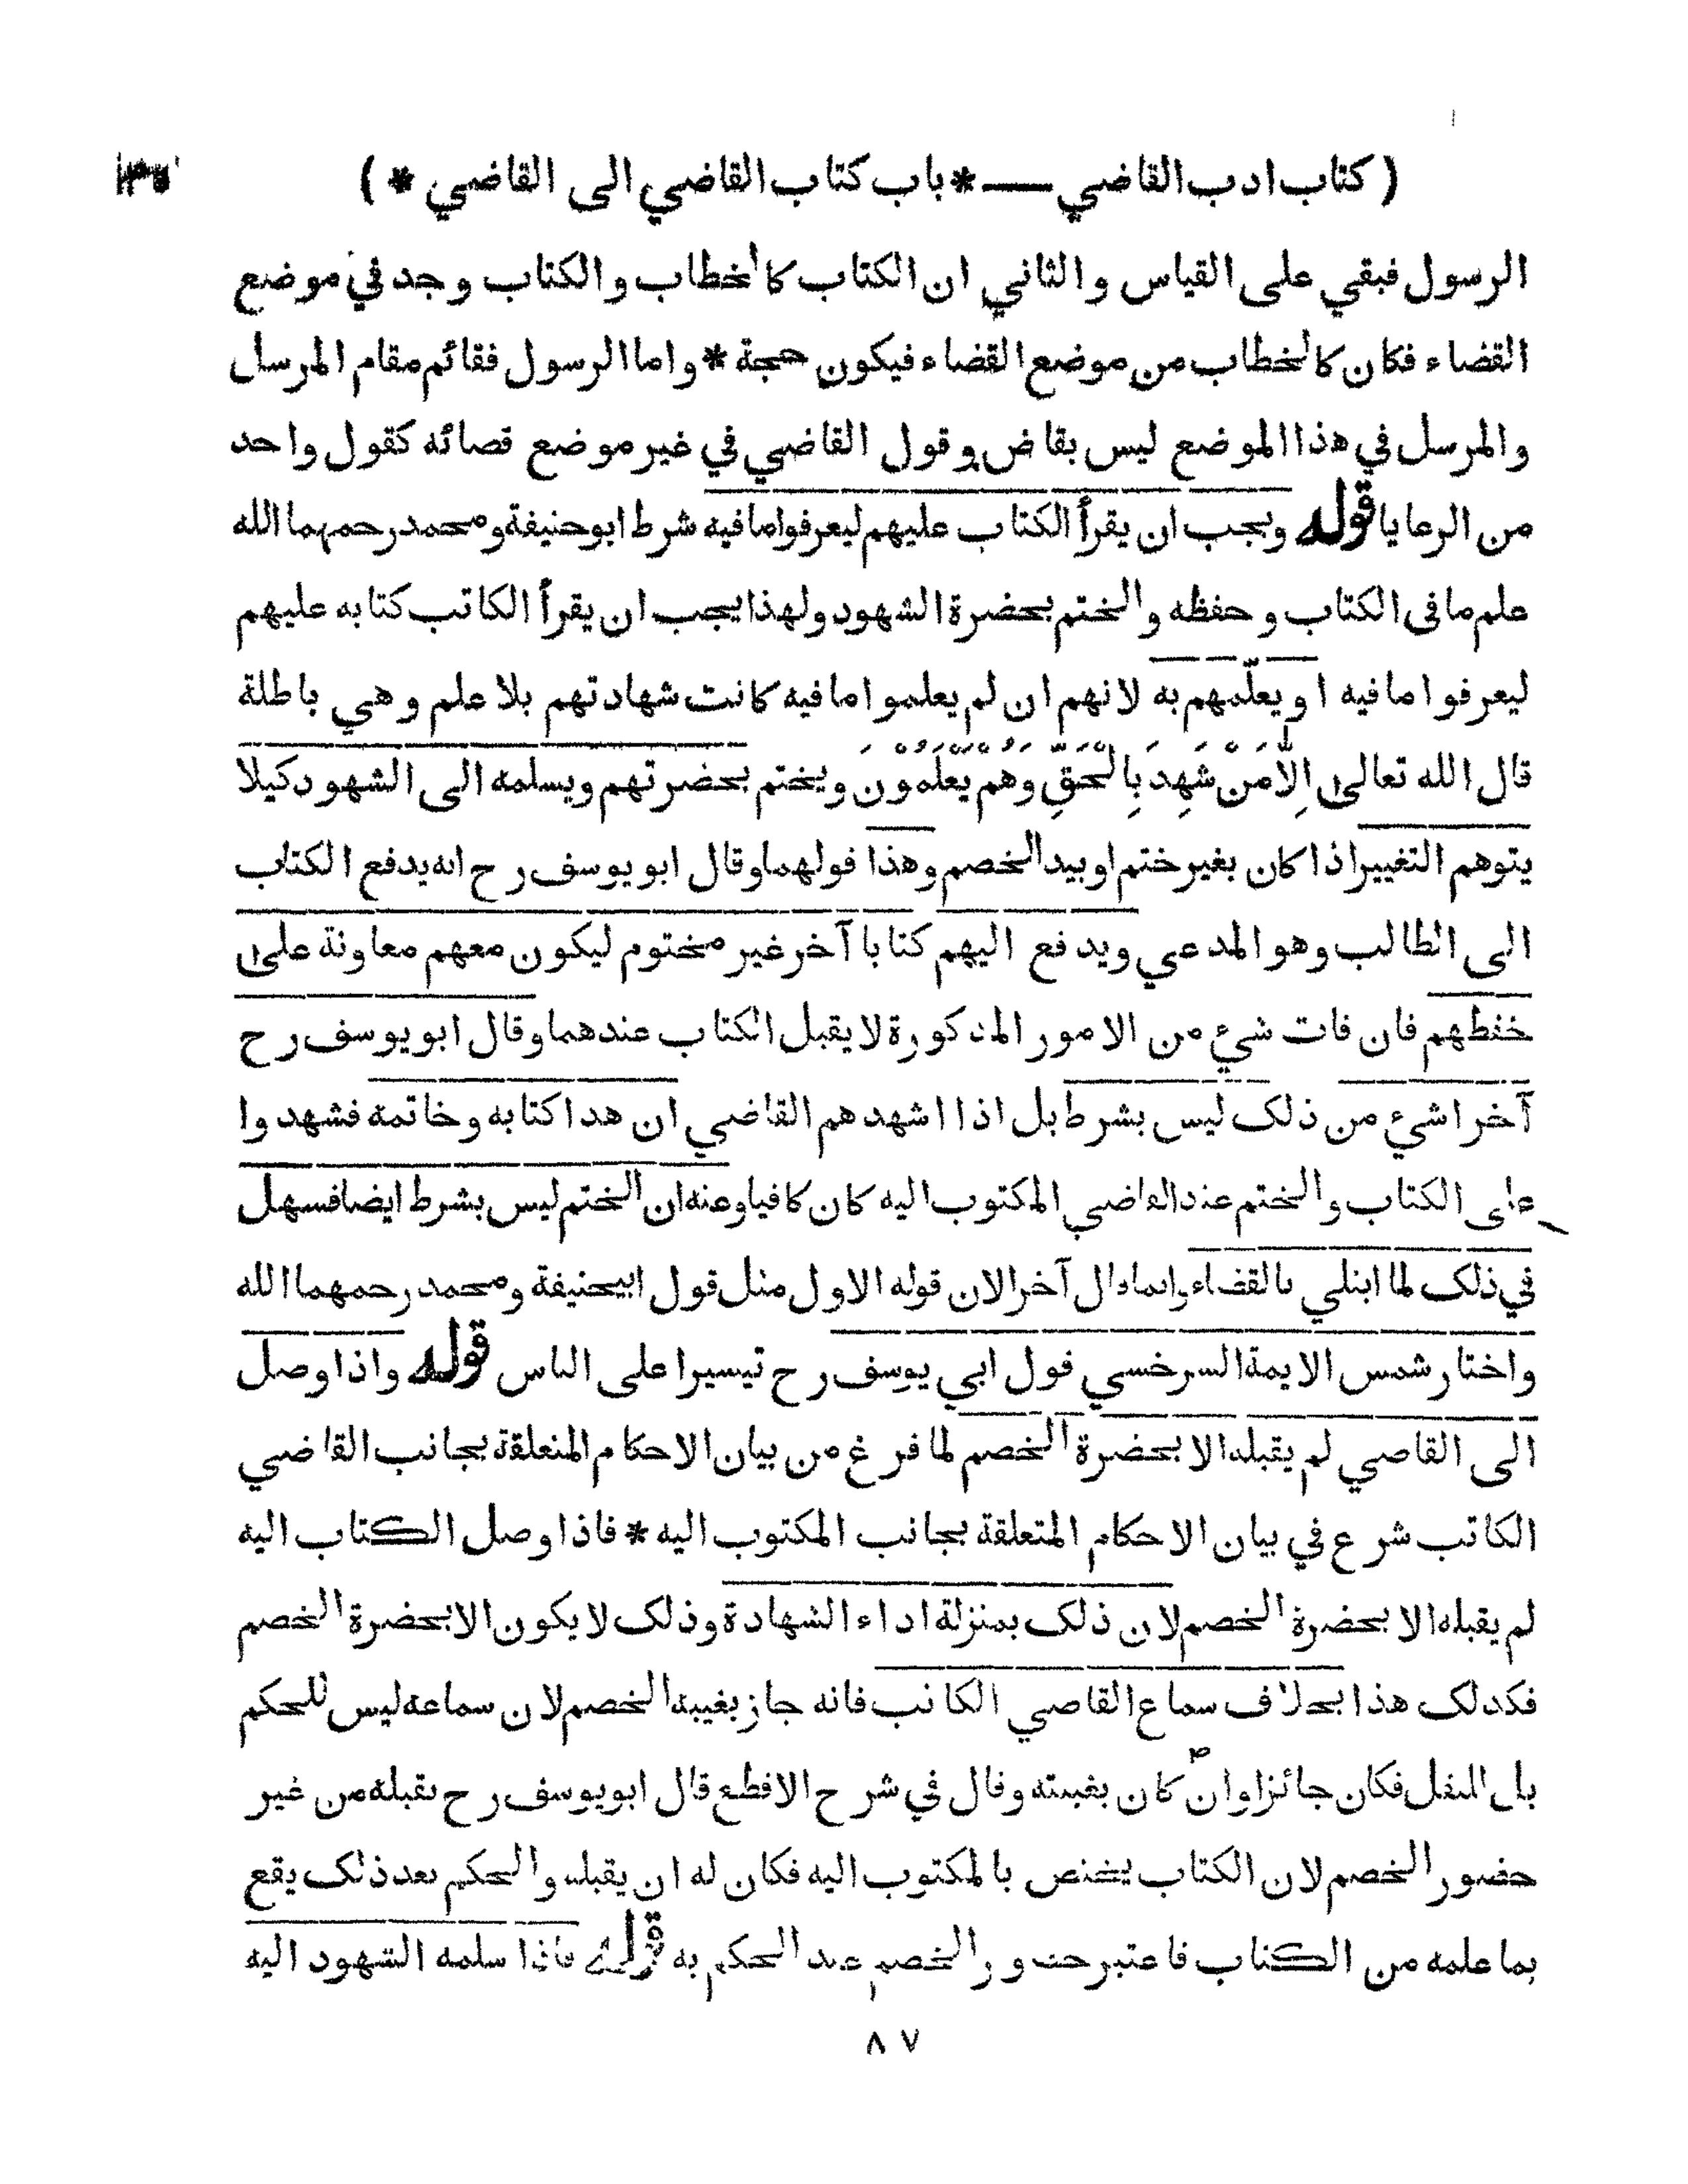 ( كتاب ادب القاضي — * باب كتاب القاضي الى القاضي * )
الرسول فبقي على القياس والثاني ان الكتاب كالخطاب والكتاب وجد في موضع
القضاء فكان كالخطاب من موضع القضاء فيكون حجة * واما الرسول فقائم مقام المرسل
والمرسل في هذا الموضع ليس بقاض وقول القاضي في غير موضع قصائه كقول واحد
من الرعايا قوله ويجب ان يقرأ الكتاب عليهم ليعرفوا ما فيه شرط ابو حنيفة ومحمد رحمهما الله
علم ما فى الكتاب وحفظه والختم بحضرة الشهود ولهذا يجب ان يقرأ الكاتب كتابه عليهم
ليعرفوا ما فيه او يعلّمهم به لانهم ان لم يعلموا ما فيه كانت شهادتهم بلا علم وهي باطلة
قال الله تعالى اِلّاٰ مَنْ شَهِدَ بِالْحَقِّ وَهُمْ يَعْلَمُوْنَ ويختم بحضرتهم ويسلمه الى الشهود كيلا
يتوهم التغيير اذا كان بغير ختم او بيد الخصم وهذا قولهما وقال ابو يوسف رح انه يدفع الكتاب
الى الطالب وهو المدعي ويدفع اليهم كتابا آخر غير مختوم ليكون معهم معاونة على
حفظهم فان فات شيء من الامور المذكورة لا يقبل الكتاب عندهما وقال ابو يوسف رح
آخرا شيء من ذلك ليس بشرط بل اذا اشهدهم القاضي ان هذا كتابه وخاتمه فشهدوا
على الكتاب والختم عند القاضي المكتوب اليه كان كافيا وعنه ان الختم ليس بشرط ايضا فسهل
في ذلك لما ابتلي بالقضاء وانما قال آخرا لان قوله الاول مثل قول ابيحنيفة ومحمد رحمهما الله
واختار شمس الايمة السرخسي قول ابي يوسف رح تيسيرا على الناس قوله واذا وصل
الى القاصي لم يقبله الا بحضرة الخصم لما فرغ من بيان الاحكام المتعلقة بجانب القاضي
الكاتب شرع في بيان الاحكام المتعلقة بجانب المكتوب اليه * فاذا وصل الكتاب اليه
لم يقبله الا بحضرة الخصم لان ذلك بمنزلة اداء الشهادة وذلك لا يكون الا بحضرة الخصم
فكذلك هذا بخلاف سماع القاصي الكاتب فانه جاز بغيبة الخصم لان سماعه ليس للحكم
بل للنقل فكان جائزا وان كان بغيبته وقال في شرح الاقطع قال ابو يوسف رح يقبله من غير
حضور الخصم لان الكتاب يختص بالمكتوب اليه فكان له ان يقبله والحكم بعد ذلك يقع
بما علمه من الكتاب فاعتبر حضور الخصم عند الحكم به قوله فاذا سلمه الشهود اليه
٨٧